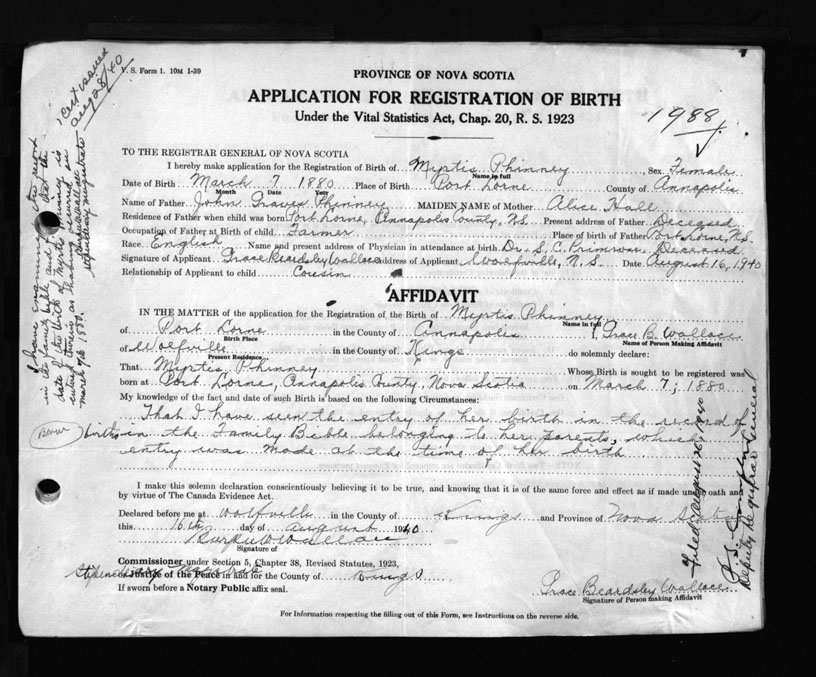 V. S. Form 1. 10M 1-39
Cert issued
Aug 28/40
PROVINCE OF NOVA SCOTIA
APPLICATION FOR REGISTRATION OF BIRTH
Under the Vital Statistics Act, Chap. 20, R. S. 1923
1988
TO THE REGISTRAR GENERAL OF NOVA SCOTIA
I hereby make application for the Registration of Birth of Myrtis Phinney Sex Female
Name in full
Date of Birth March 7 1880 Place of Birth Port Lorne County of Annapolis
Month Date Year
Name of Father John Graves Phinney MAIDEN NAME of Mother Alice Hall
Residence of Father when child was born Port Lorne, Annapolis County, N.S. Present address of Father Deceased
Occupation of Father at Birth of child Farmer Place of birth of Father Port Lorne, N.S.
Race English Name and present address of Physician in attendance at birth Dr. S. C. Primrose, Deceased
Signature of Applicant Grace Beardsley Wallace Address of Applicant Wolfville, N.S. Date August 16, 1940
Relationship of Applicant to child Cousin
AFFIDAVIT
IN THE MATTER of the application for the Registration of the Birth of Myrtis Phinney
Name in full
of Port Lorne in the County of Annapolis I, Grace B. Wallace
Birth Place Name of Person Making Affidavit
of Wolfville in the County of Kings do solemnly declare:
Present Residence
That Myrtis Phinney Whose Birth is sought to be registered was
born at Port Lorne, Annapolis County, Nova Scotia on March 7, 1880
My knowledge of the fact and date of such Birth is based on the following Circumstances:
That I have seen the entry of her birth in the record of
births in the Family Bible belonging to her parents, which
entry was made at the time of her birth
I make this solemn declaration conscientiously believing it to be true, and knowing that it is of the same force and effect as if made under oath and
by virtue of The Canada Evidence Act.
Declared before me at Wolfville in the County of Kings and Province of Nova Scotia
this 16th day of August 1940
Wallace
Signature of
Commissioner under Section 5, Chapter 38, Revised Statutes, 1923,
Stipendiary Magistrate
Justice of the Peace in and for the County of Kings
If sworn before a Notary Public affix seal.
Grace Beardsley Wallace
Signature of Person making Affidavit
For Information respecting the filling out of this Form, see Instructions on the reverse side.
I have examined the record
in the family bible and the
date of the birth of Myrtis is
entered therein as having occurred on
March 7th 1880.
Wallace
Stipendiary Magistrate
Filed August 26, 1940
Deputy Registrar General